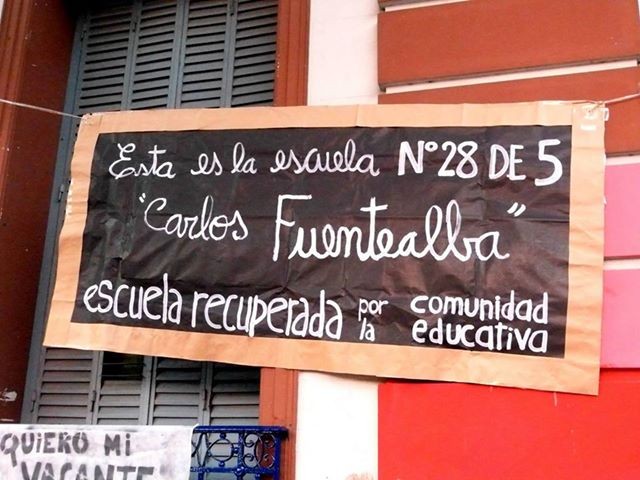 Esta es la escuela N°28 DE 5
"Carlos Fuentealba"
escuela recuperada por la comunidad educativa
QUIERO MI
VACANTE